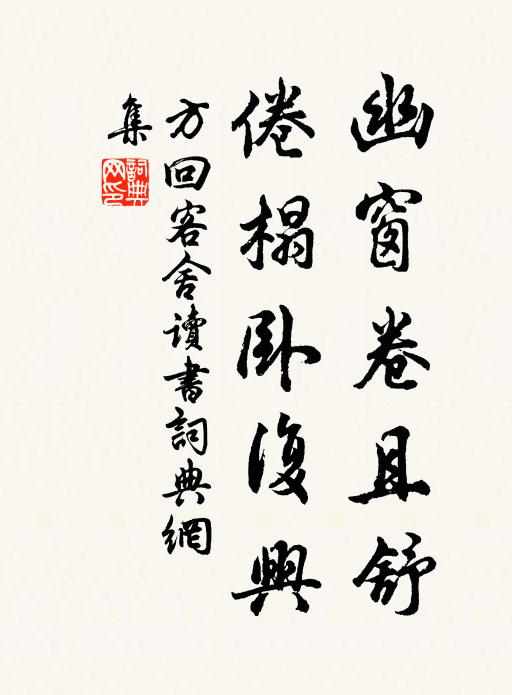 幽窗卷且舒
倦榻卧復興
方回客舍讀書詞典網
集
詞典網印